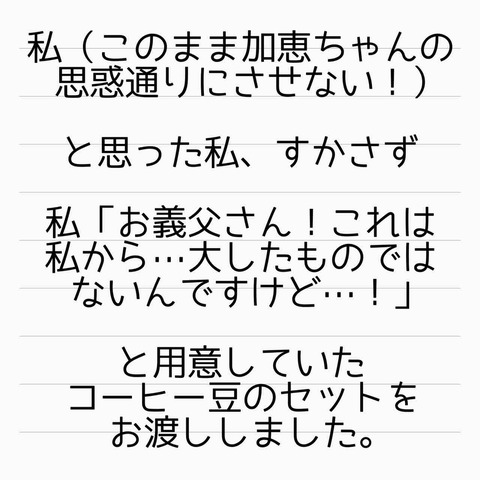 私（このまま加恵ちゃんの
思惑通りにさせない！）
と思った私、すかさず
私「お義父さん！これは
私から…大したものでは
ないんですけど…！」
と用意していた
コーヒー豆のセットを
お渡ししました。